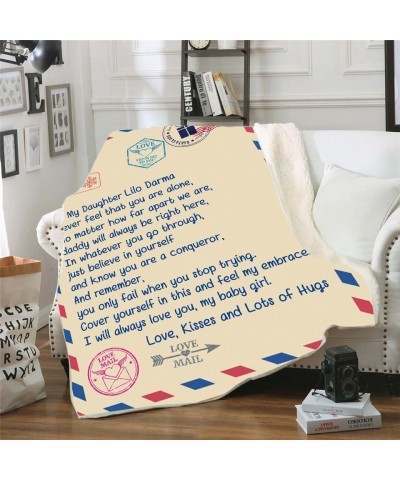 LOVE
My Daughter Lilo Darma
ever feel that you are alone,
o matter how far apart we are,
addy will always be right here,
In whatever you go through,
just believe in yourself
and know you are a conqueror,
And remember,
you only fail when you stop trying.
Cover yourself in this and feel my embrace
I will always love you, my baby girl.
Love, Kisses and Lots of Hugs
LOVE
MAIL
LOVE
MAIL
CENTURY
A B C D E
F G H I J K